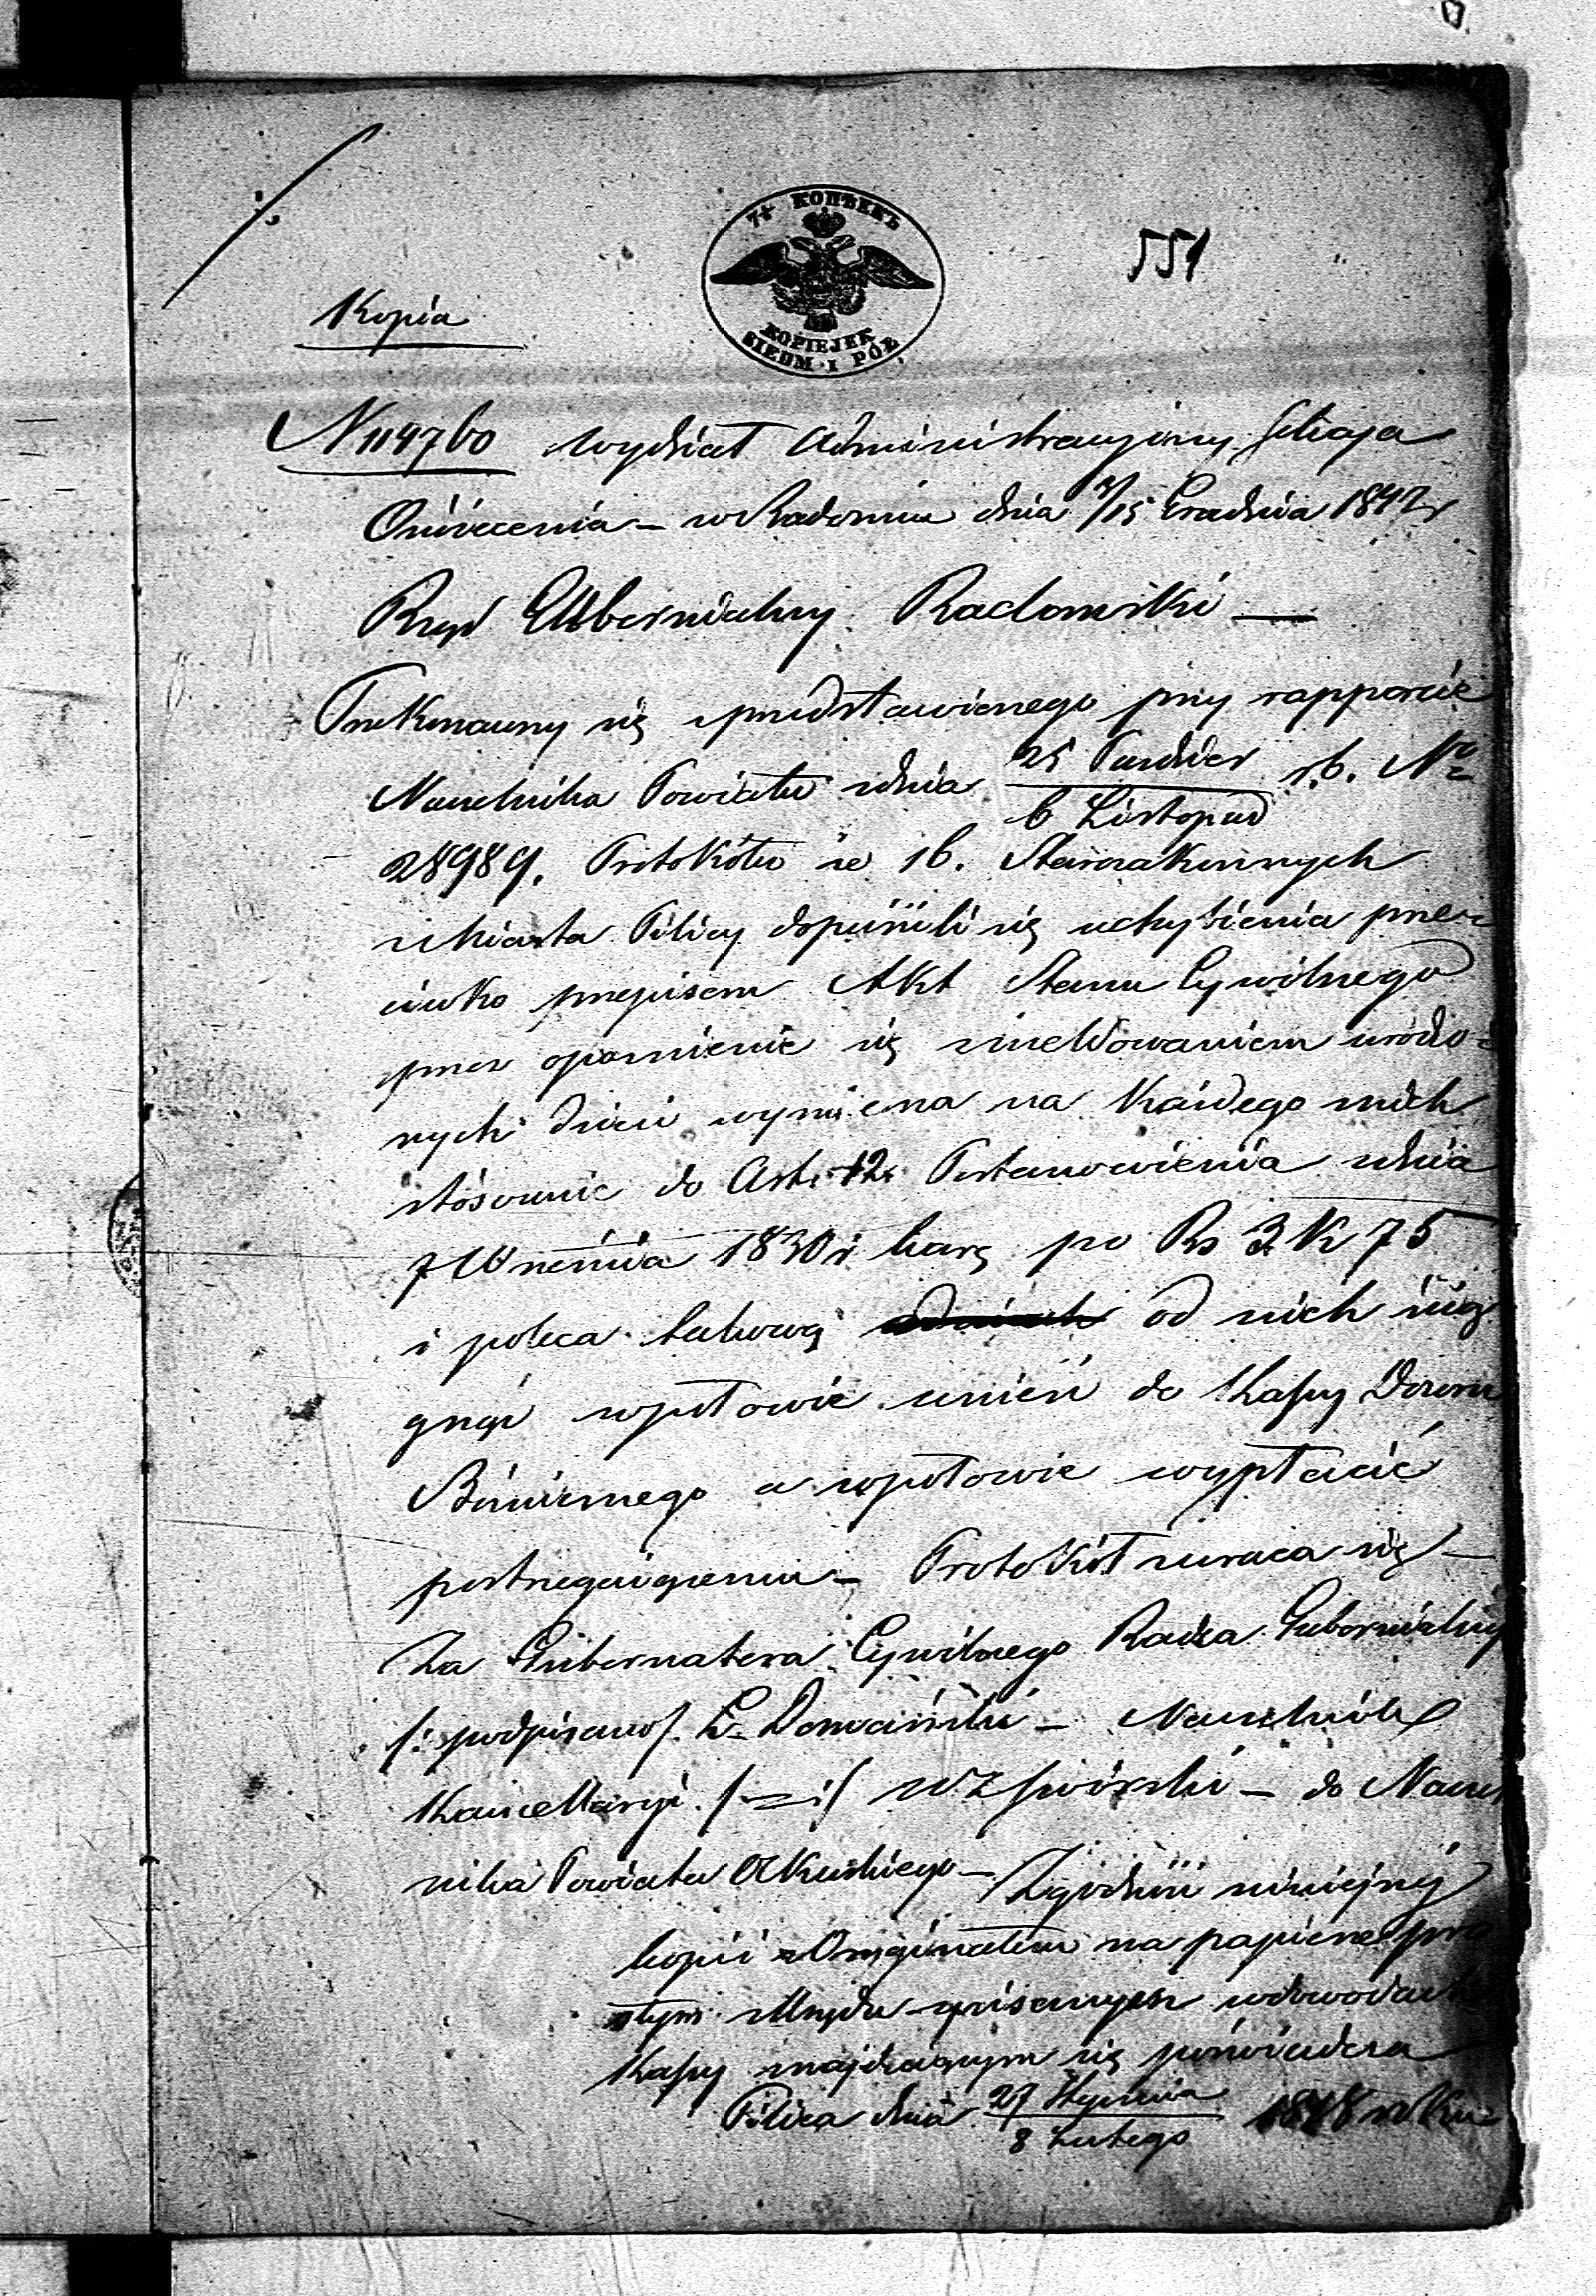 551
7½ КОПѢЕКЪ
KOPIEJEK
SIEDM I PÓŁ
Kopia
N 114760 Wydział Administracyiny Sekcya
Oświecenia – w Radomiu dnia 3/15 Grudnia 1847 r
Rząd Gubernialny Radomski —
Przekonawszy się z przedstawionego przy rapporcie
Naczelnika Powiatu z dnia 25 Paździer / 6 Listopad r.b. No
28989. Protokółu że 16. Starozakonnych
z Miasta Pilicy dopuścili się uchybienia prze=
ciwko przepisom Akt Stanu Cywilnego
przez opóźnienie się z meldowaniem urodzo=
nych dzieci wymierza na Każdego z nich
stósownie do Art. 12. Postanowienia z dnia
7 Września 1830 r karę po Rs 3 K 75
i poleca takową od nich ścią
gnąć w połowie wnieść do Kassy Dozoru
Bóżniczego a w połowie wypłacić
postrzegaiącemu – Protokół zwraca się –
Za Gubernatora Cywilnego Radca Gubernialny
/: podpisano/. L. Domański – Naczelnik
Kancellaryi. /–:/ – do Naczel
nika Powiatu Olkuskiego – Zgodność niniejszej
kopii z Oryginałem na papierze pro
stym z Urzędu spisanym w dowodach
Kassy znajdującym się poświadcza
Pilica dnia 27 Stycznia / 8 Lutego 1848 roku